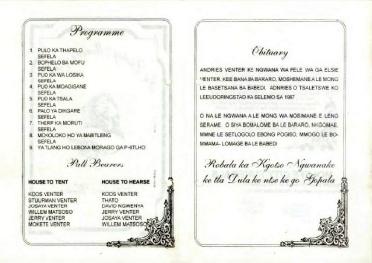 Programme
1. PULO KA THAPELO
SEFELA
2. BOPHELO BA MOFU
SEFELA
3. PUO KA WA LOSIKA
SEFELA
4. PUO KA MOAGISANE
SEFELA
5. PUO KA TSALA
SEFELA
6. PALO YA DIKGARE
SEFELA
7. THERF KA MORUTI
SEFELA
8. MOKOLOKO HO YA MABITLENG
SEFELA
9. YA TLANG HO LEBOHA MORAGO GA
Pall Bearers
HOUSE TO TENT
KOOS VENTER
STUURMAN VENTER
JOSAYA VENTER
WILLEM MATSOSO
JERRY VENTER
MOKETE VENTER
HOUSE TO HEARSE
KOOS VENTER
THATO
DAVID NGWENYA
JERRY VENTER
JOSAYA VENTER
WILLEM MATSOSO
Obituary
ANDRIES VENTER KE NGWANA WA PELE WA GA ELSIE
VENTER, KEE BANA BA BARARO, MOSHEMANE A LE MONG
LE BASETSANA BA BABEDI. ADNRIES O TSALETSWE KO
LEEUDORINGSTAD KA SELEMO SA 1987
O NA LE NGWANA A LE MONG WA MOSIMANE E LENG
SERAME. O SIYA BOMALOME BA LE BARARO, NKGOMAE,
MMNE LE SETLOGOLO EBONG POGISO, MMOGO LE BO-
MMAMA- LOMAGE BA LE BABEDI
Robala ka Kgotso Ngwanake
ke tla Dula ke ntse ke go Gopola